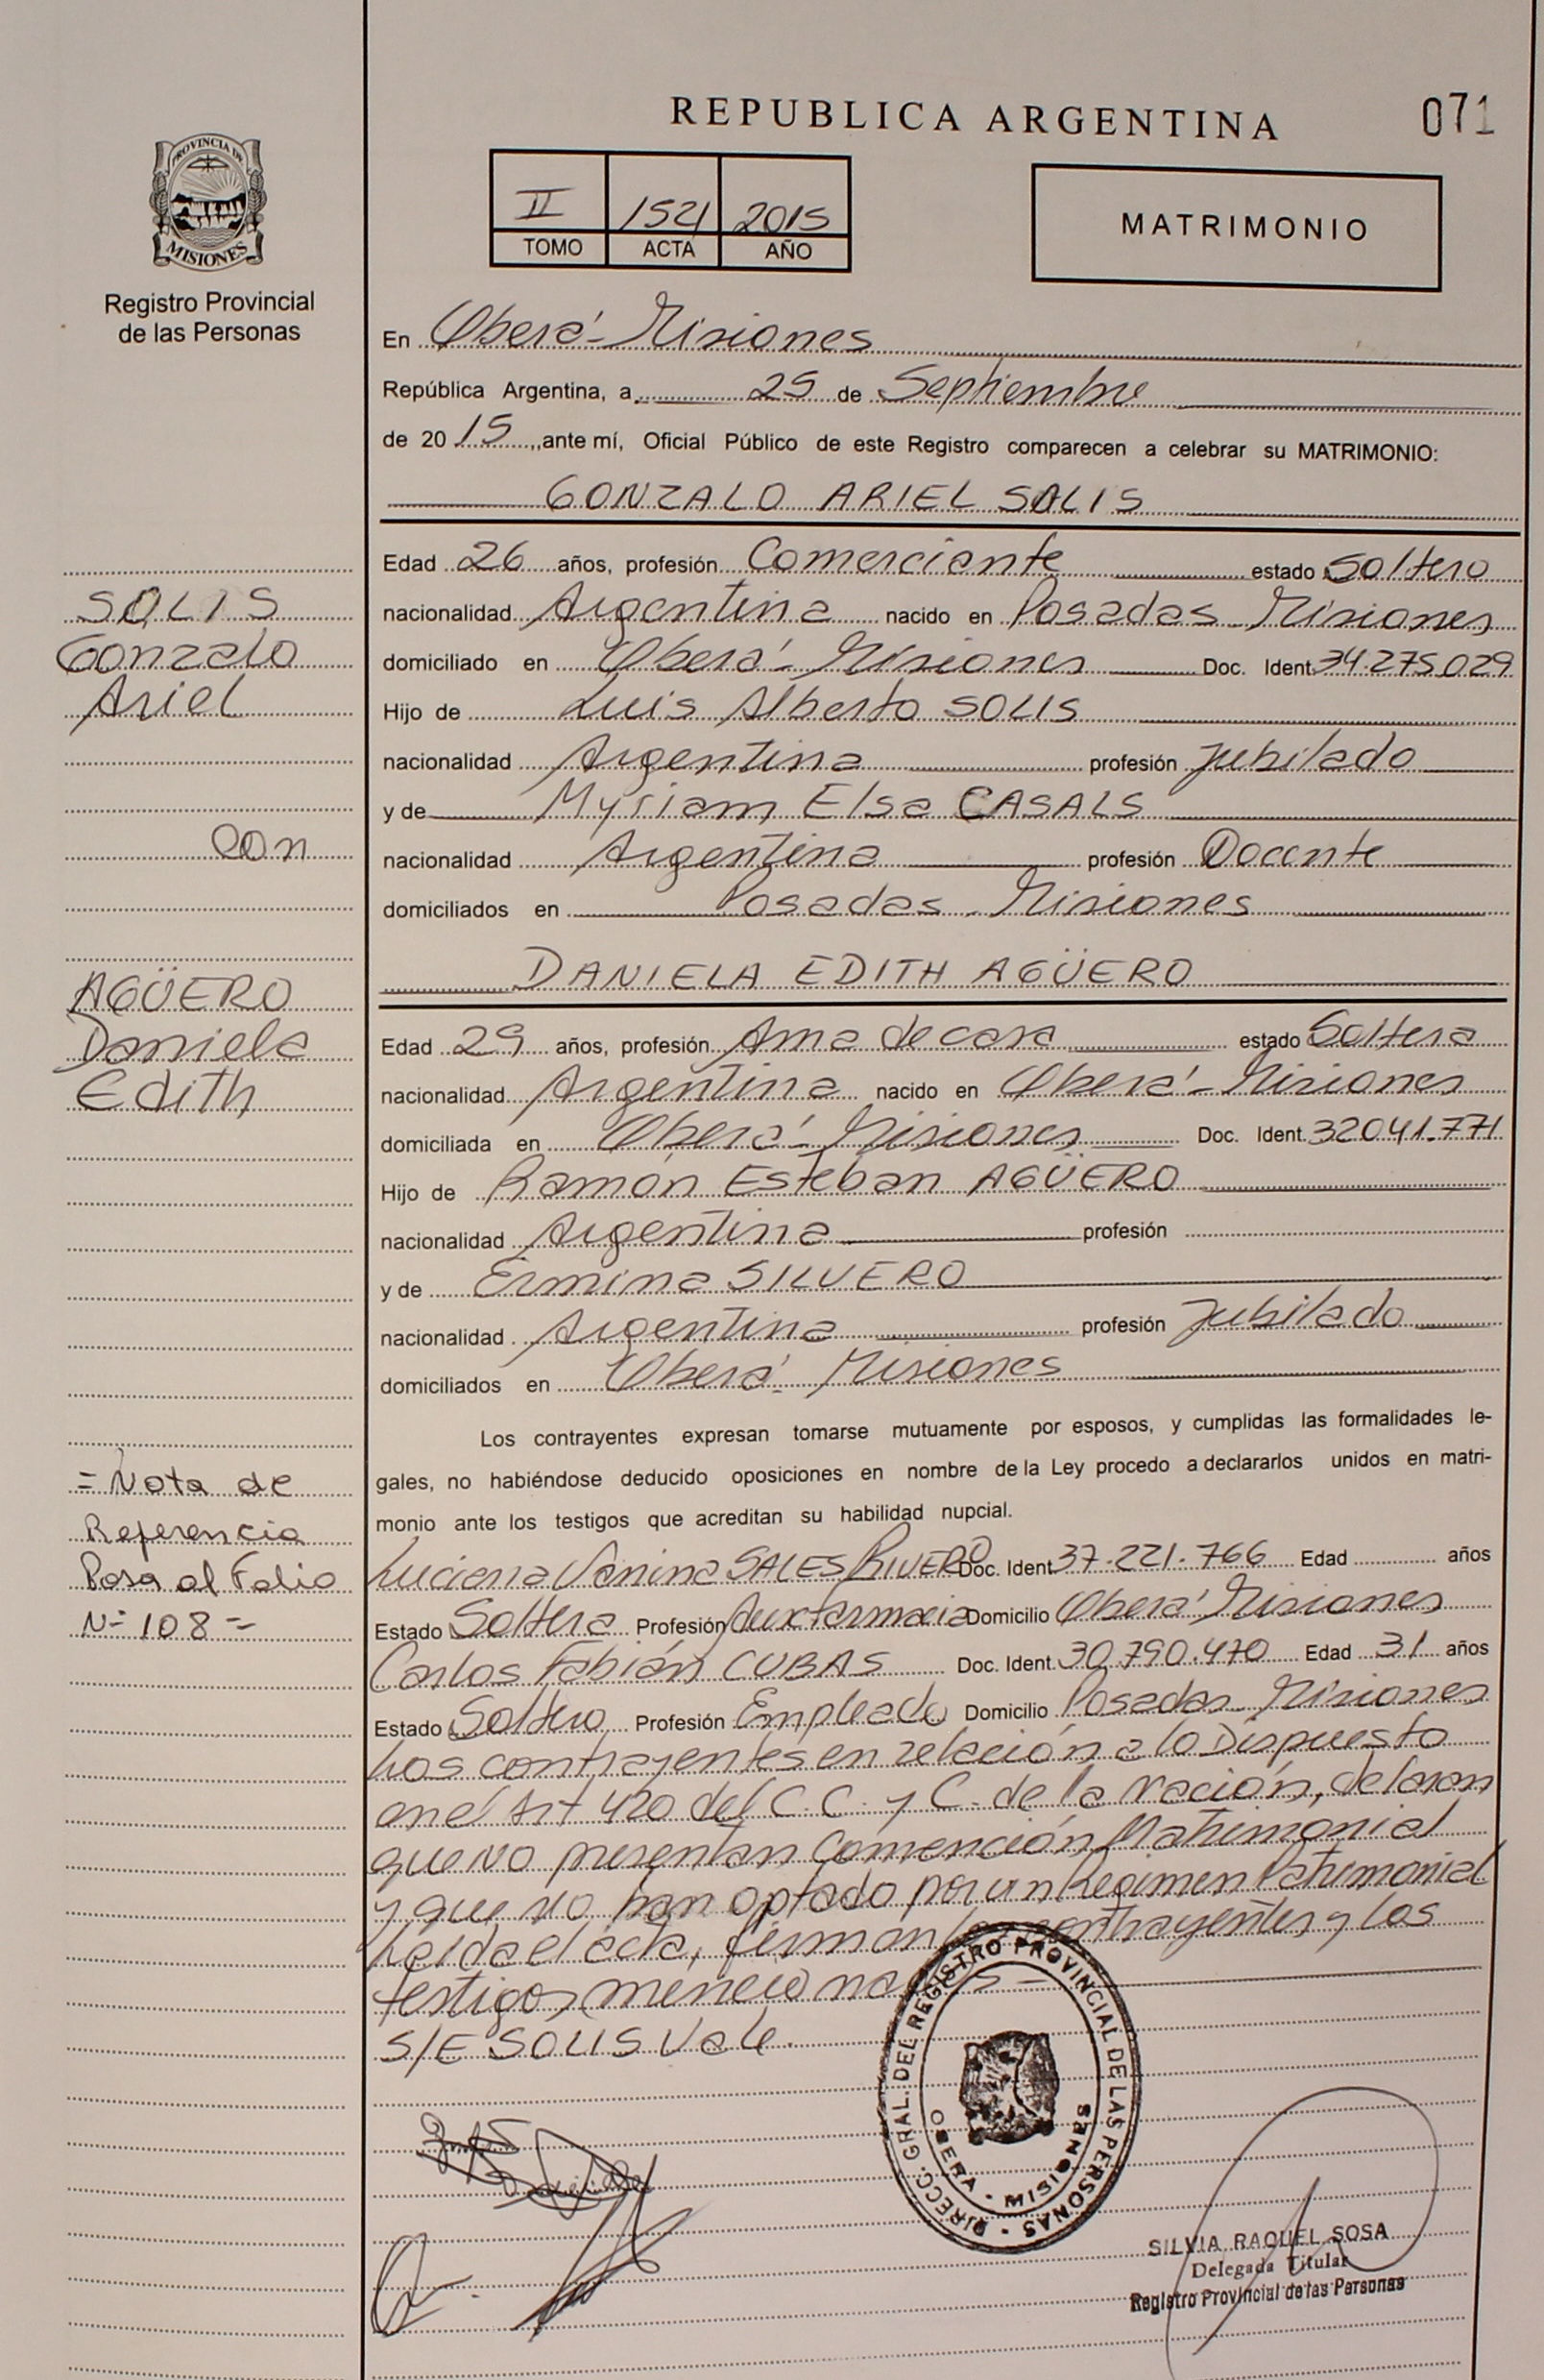 REPUBLICA ARGENTINA
071
PROVINCIA DE
MISIONES
Registro Provincial
de las Personas
II 1521 2015
TOMO ACTA AÑO
MATRIMONIO
En Oberá - Misiones
República Argentina, a 25 de Septiembre
de 2015, ante mí, Oficial Público de este Registro comparecen a celebrar su MATRIMONIO:
GONZALO ARIEL SOLIS
SOLIS
Gonzalo
Ariel
con
AGÜERO
Daniela
Edith
Edad 26 años, profesión Comerciante estado Soltero
nacionalidad Argentina nacido en Posadas - Misiones
domiciliado en Oberá - Misiones Doc. Ident. 34.275.029
Hijo de Luis Alberto SOLIS
nacionalidad Argentina profesión Jubilado
y de Myriam Elsa CASALS
nacionalidad Argentina profesión Docente
domiciliados en Posadas - Misiones
DANIELA EDITH AGÜERO
Edad 29 años, profesión Ama de casa estado Soltera
nacionalidad Argentina nacido en Oberá - Misiones
domiciliada en Oberá - Misiones Doc. Ident. 32041.771
Hijo de Ramón Esteban AGÜERO
nacionalidad Argentina profesión
y de Ermina SILVERO
nacionalidad Argentina profesión Jubilado
domiciliados en Oberá - Misiones
Los contrayentes expresan tomarse mutuamente por esposos, y cumplidas las formalidades le-
gales, no habiéndose deducido oposiciones en nombre de la Ley procedo a declararlos unidos en matri-
monio ante los testigos que acreditan su habilidad nupcial.
= Nota de
Referencia
Pasa al Folio
Nº 108 =
Luciana Vanina SALES RIVERO Doc. Ident. 37.221.766 Edad años
Estado Soltera Profesión Aux farmacia Domicilio Oberá Misiones
Carlos Fabián CUBAS Doc. Ident. 30.790.470 Edad 31 años
Estado Soltero Profesión Empleado Domicilio Posadas - Misiones
Los contrayentes en relación a lo Dispuesto
en el Art 420 del C.C. y C. de la Nación, delaran
que no presentan Convención Matrimonial
y que no han optado por un Regimen Patrimonial
Leida el acta, firman los contrayentes y los
testigos mencionados -
S/E SOLIS Vale.
DIRECC. GRAL. DEL REGISTRO PROVINCIAL DE LAS PERSONAS -
OBERA - MISIONES
SILVIA RAQUEL SOSA
Delegada Titular
Registro Provincial de las Personas